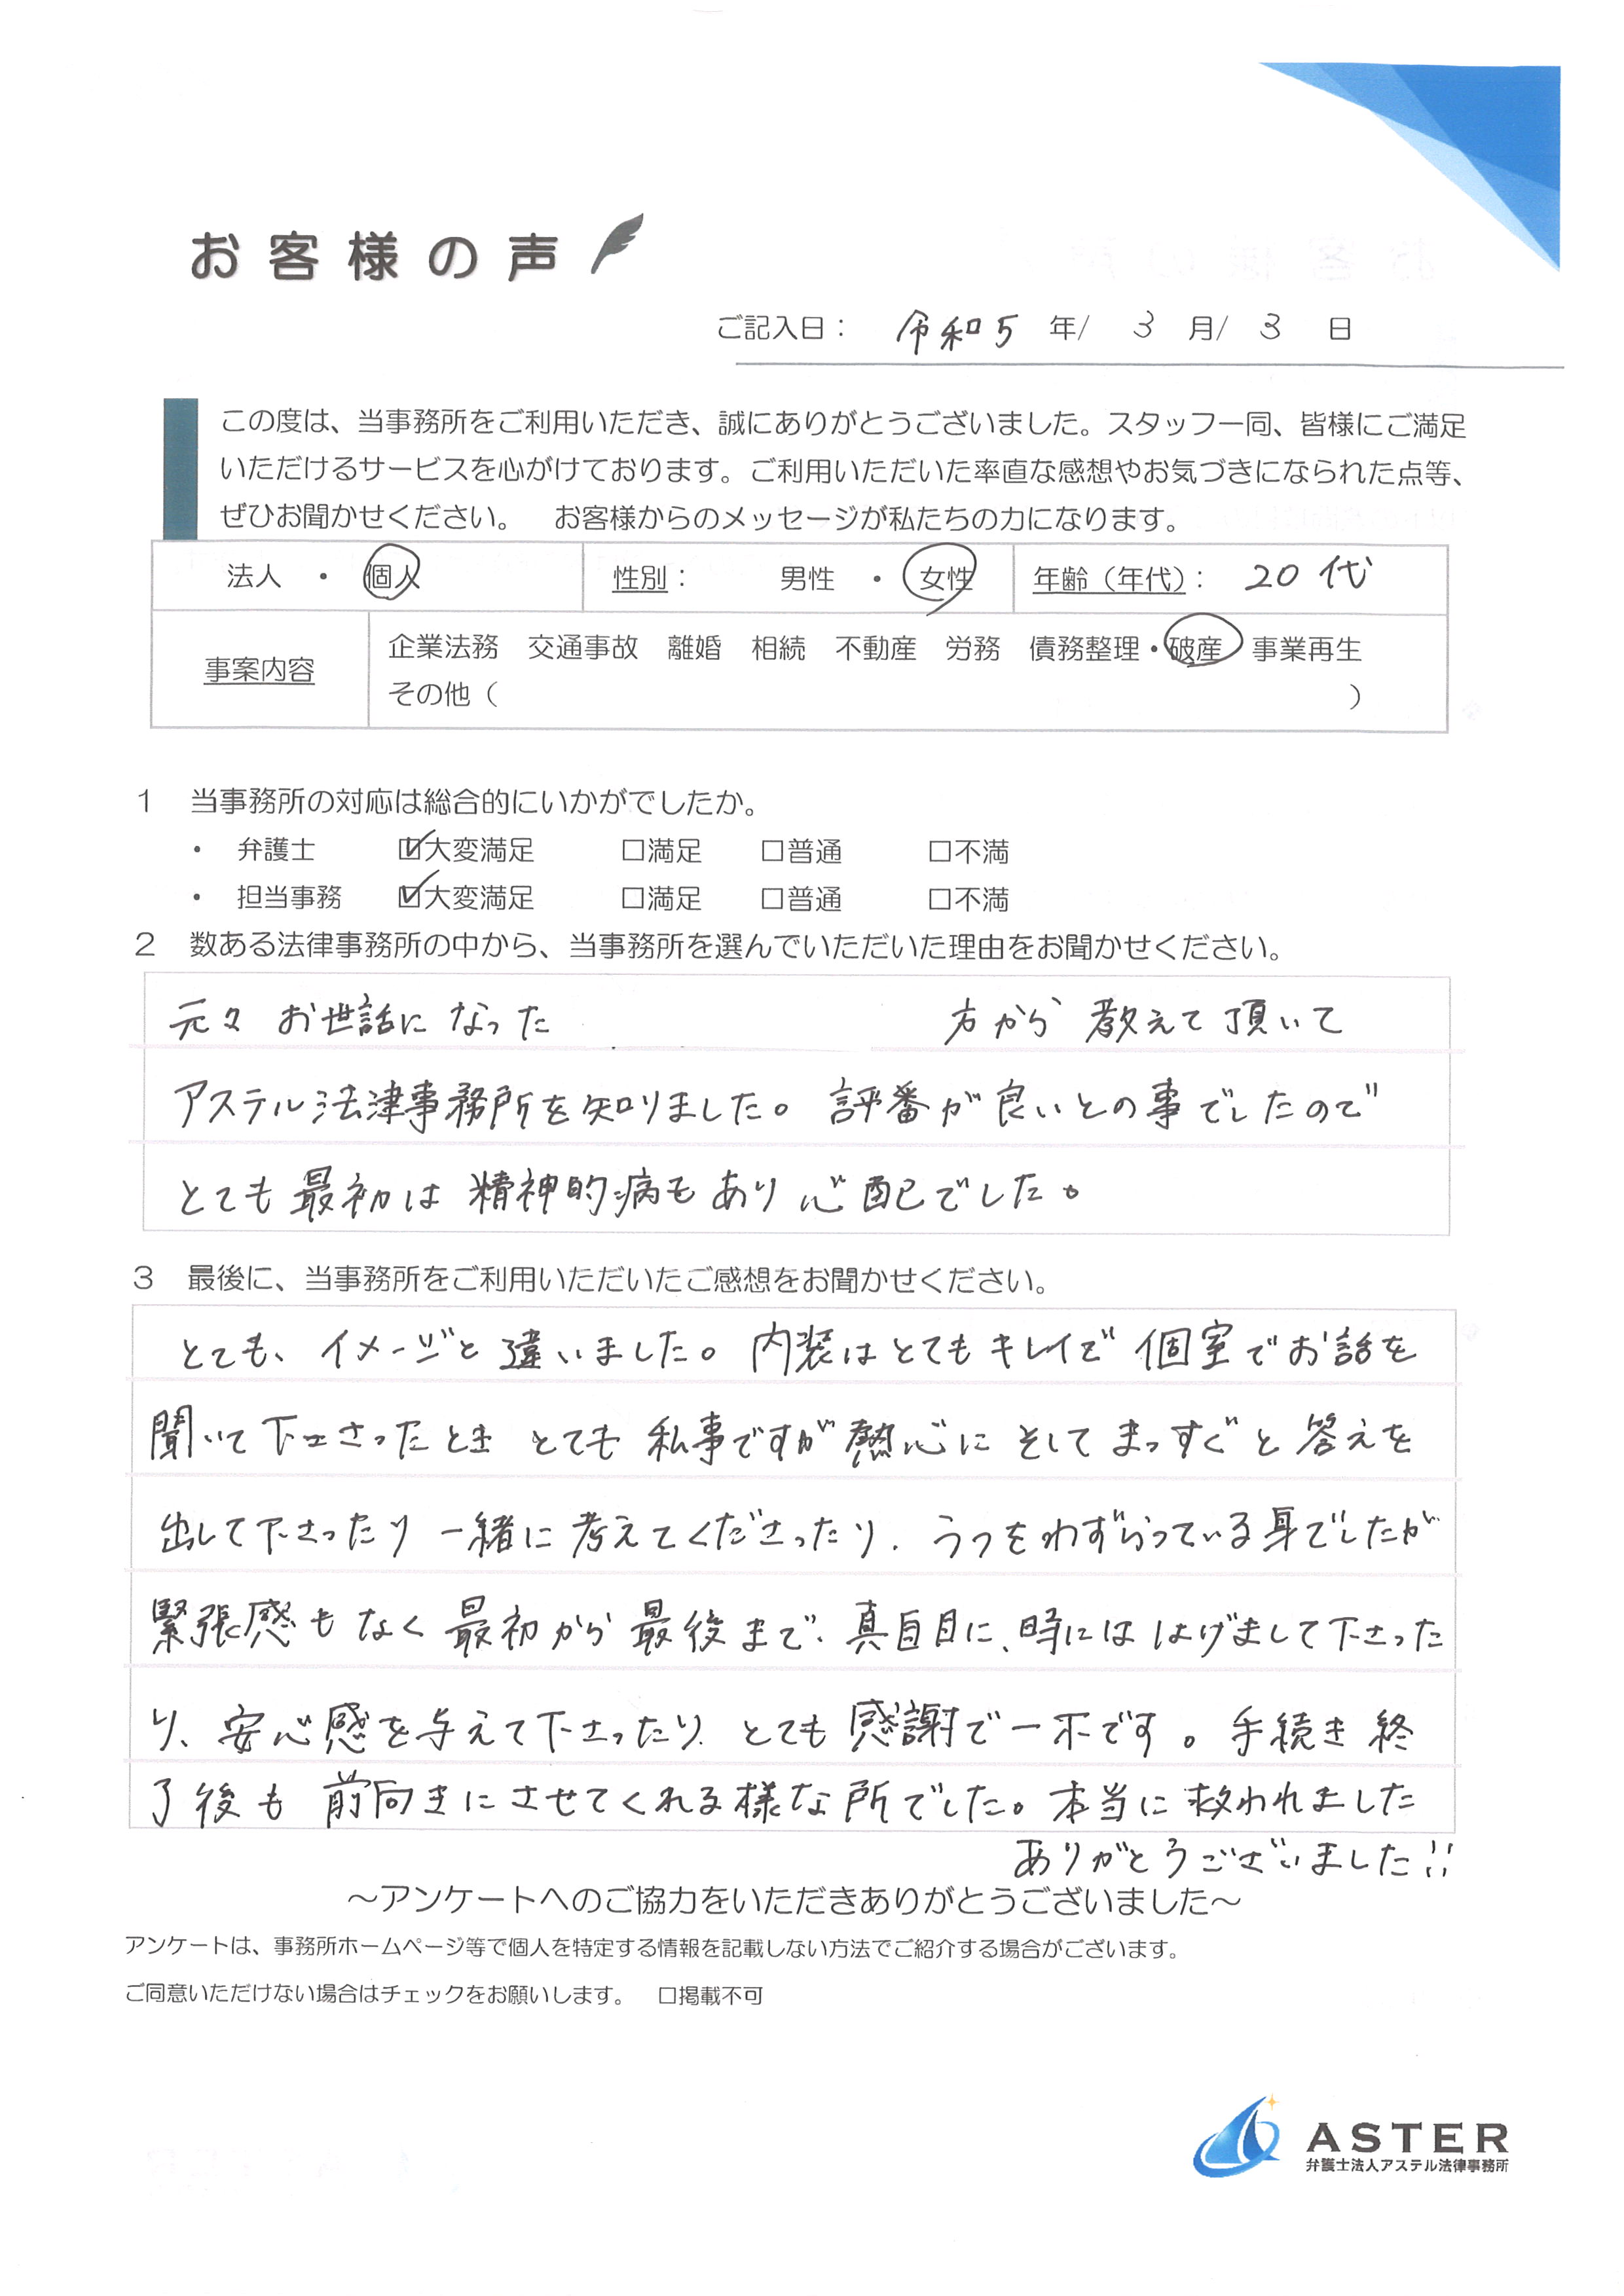 お客様の声
ご記入日： 令和5 年/ 3 月/ 3 日
この度は、当事務所をご利用いただき、誠にありがとうございました。スタッフ一同、皆様にご満足
いただけるサービスを心がけております。ご利用いただいた率直な感想やお気づきになられた点等、
ぜひお聞かせください。 お客様からのメッセージが私たちの力になります。
法人 ・ 個人 性別： 男性 ・ 女性 年齢（年代）： 20代
事案内容 企業法務 交通事故 離婚 相続 不動産 労務 債務整理・破産 事業再生
その他（ ）
1 当事務所の対応は総合的にいかがでしたか。
・ 弁護士 ☑大変満足 □満足 □普通 □不満
・ 担当事務 ☑大変満足 □満足 □普通 □不満
2 数ある法律事務所の中から、当事務所を選んでいただいた理由をお聞かせください。
元々 お世話になった 方から 教えて頂いて
アステル法律事務所を知りました。評番が良いとの事でしたので
とても最初は精神的病もあり心配でした。
3 最後に、当事務所をご利用いただいたご感想をお聞かせください。
とても、イメージと違いました。内装はとてもキレイで個室でお話を
聞いて下さったとき とても 私事ですが熱心に そして まっすぐと 答えを
出して下さったり 一緒に考えてくださったり、うつをわずらっている身でしたが
緊張感もなく最初から最後まで、真自目に、時には はげまして下さった
り、安心感を与えて下さったり、とても感謝で一不です。手続き終
了後も 前向きにさせてくれる様な所でした。本当に救われました
ありがとうございました!!
～アンケートへのご協力をいただきありがとうございました～
アンケートは、事務所ホームページ等で個人を特定する情報を記載しない方法でご紹介する場合がございます。
ご同意いただけない場合はチェックをお願いします。 □掲載不可
ASTER
弁護士法人アステル法律事務所